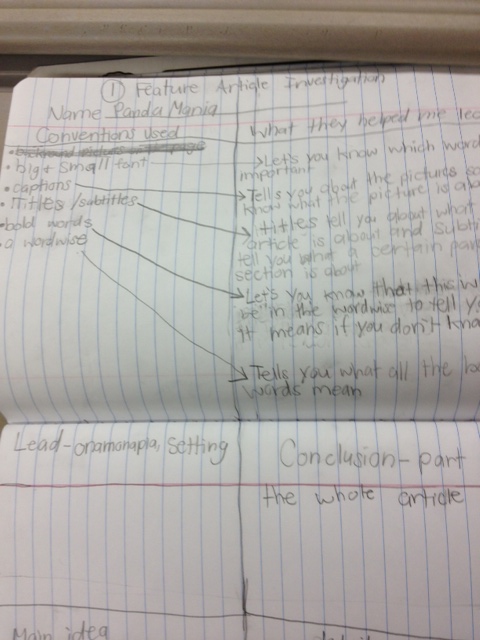 ① Feature Article Investigation
Name Panda Mania
Conventions used
• big + small font
• captions
• Titles/subtitles
• bold words
• a wordwise
What they helped me
Let's you know which
important
Tells you about the pictures so
know what the picture is
titles tell you about what
article is about and
tell you what a certain
section is about
Let's you know that this
be in the wordwise to tell
it means if you don't
Tells you what all the
words mean
Lead-onamonapia, Setting
Conclusion- part
the whole article
Main idea